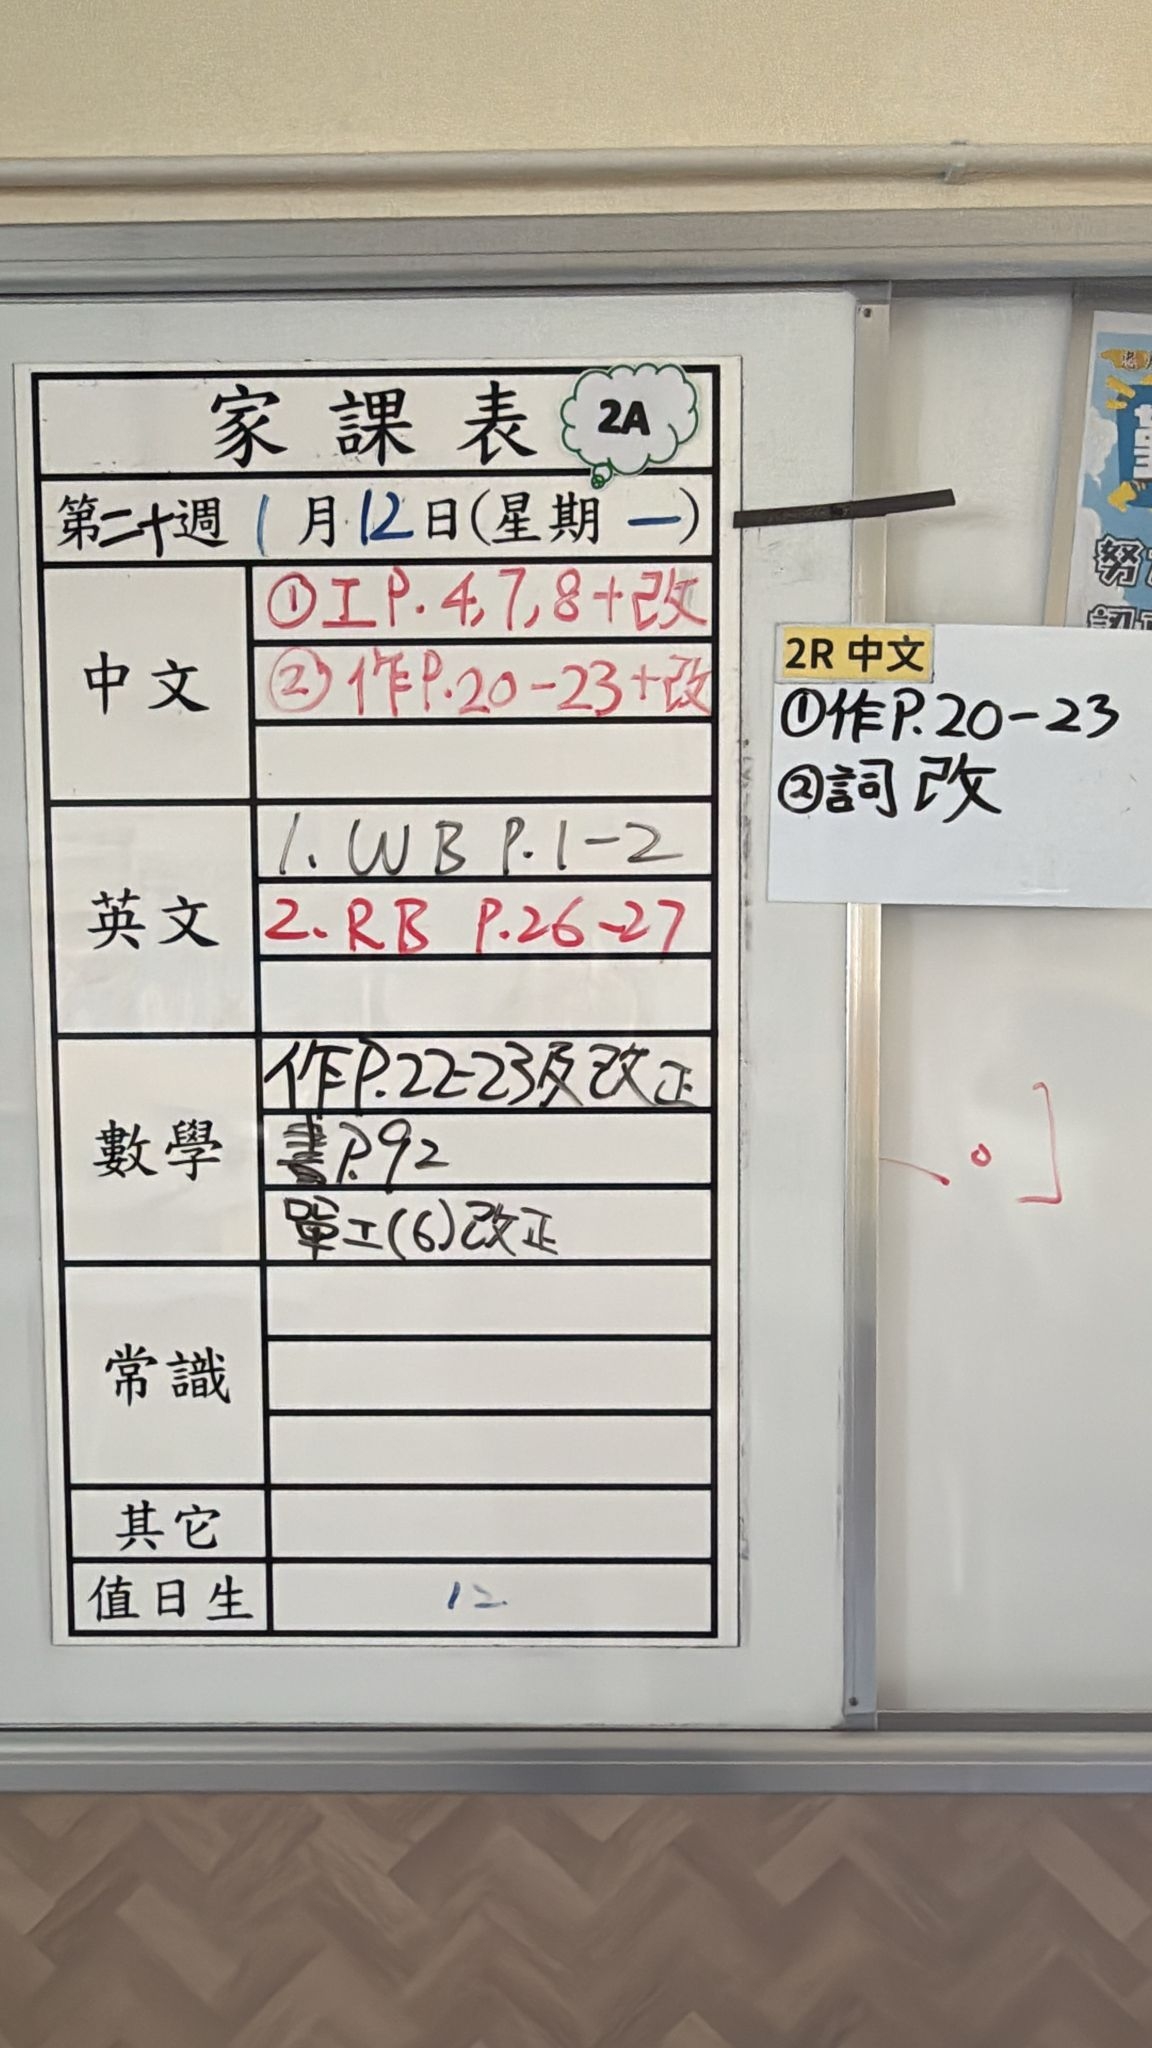 家課表 2A
第二十週 1月12日(星期一)
中文
①工P.4,7,8+改
②作P.20-23+改
英文
1. WB P.1-2
2. RB P.26-27
數學
作P.22-23及改正
書P.92
單工(6)改正
常識
其它
值日生 12
2R 中文
①作P.20-23
②詞改
努